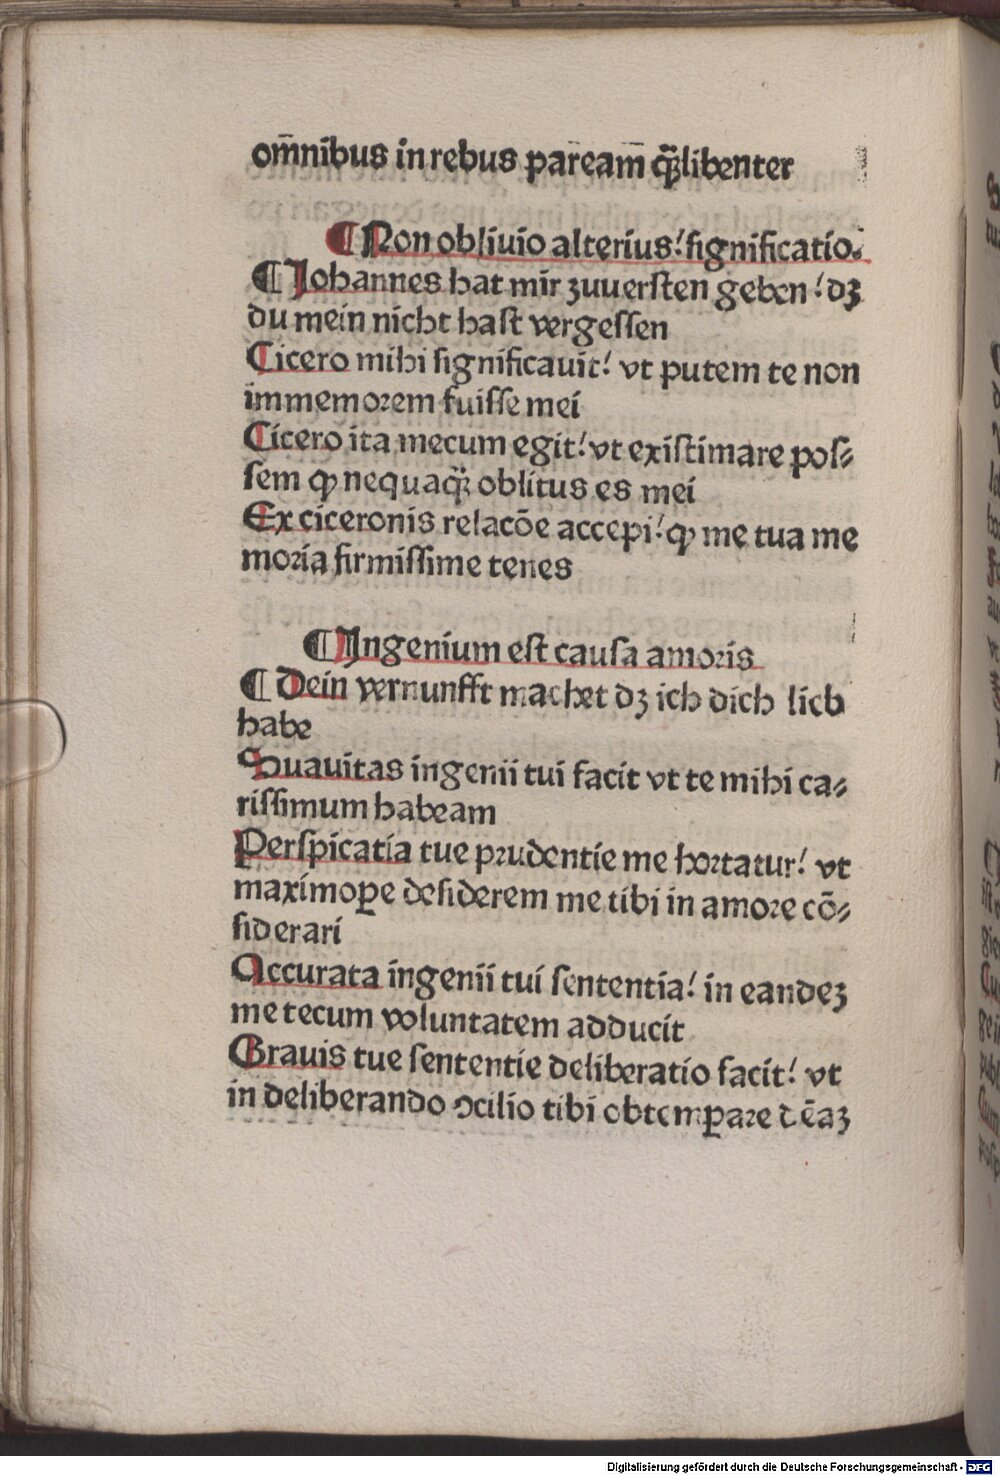 om̄nibus in rebus pareām q̈̄libenter
¶ Non obliuio alterius: significatio.
¶ Johannes hat mir zuuersten geben: dꝫ
du mein nicht hast vergessen
Cicero mihi significauit: vt putem te non
immemorem fuisse mei
Cicero ita mecum egit: vt existimare pos⸗
sem ꝙ nequaq̈̄ oblitus es mei
Ex ciceronis relacōe accepi: ꝙ me tua me
moria firmissime tenes
¶ Ingenium est causa amoris
¶ Dein vernunfft machet dꝫ ich dich lieb
habe
Suauitas ingenii tui facit vt te mihi ca⸗
rissimum habeam
Perspicatia tue prudentie me hortatur: vt
maximoꝑe desiderem me tibi in amore cō⸗
siderari
Accurata ingenii tui sententia: in eandeꝫ
me tecum voluntatem adducit
Grauis tue sententie deliberatio facit: vt
in deliberando ↄcilio tibi obtemꝑare dēaꝫ
Digitalisierung gefördert durch die Deutsche Forschungsgemeinschaft - DFG